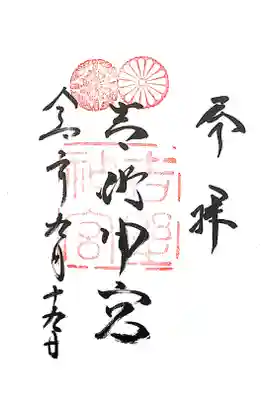 奉拝
吉野神宮
吉野神宮
令和 年九月十 日